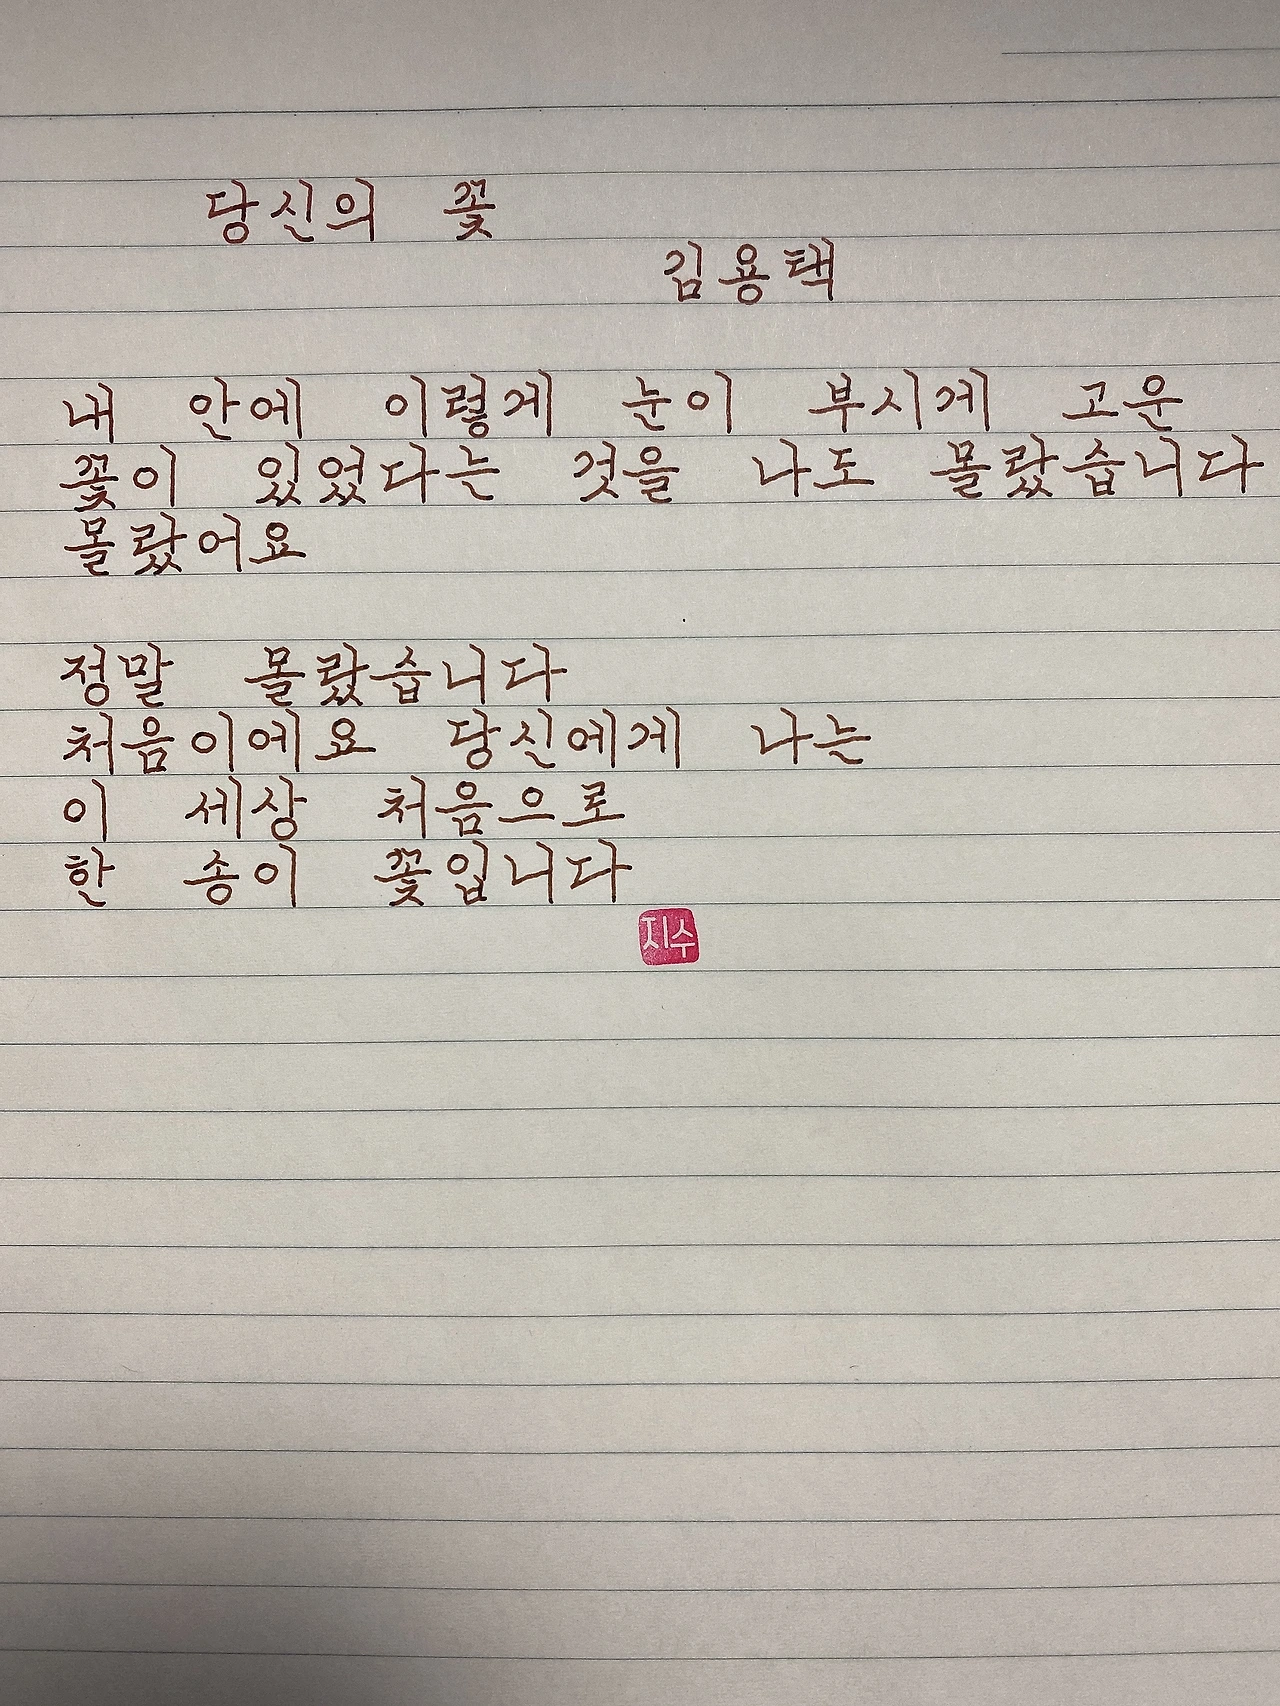 당신의 꽃
김용택
내 안에 이렇게 눈이 부시게 고운
꽃이 있었다는 것을 나도 몰랐습니다
몰랐어요
정말 몰랐습니다
처음이에요 당신에게 나는
이 세상 처음으로
한 송이 꽃입니다
지수